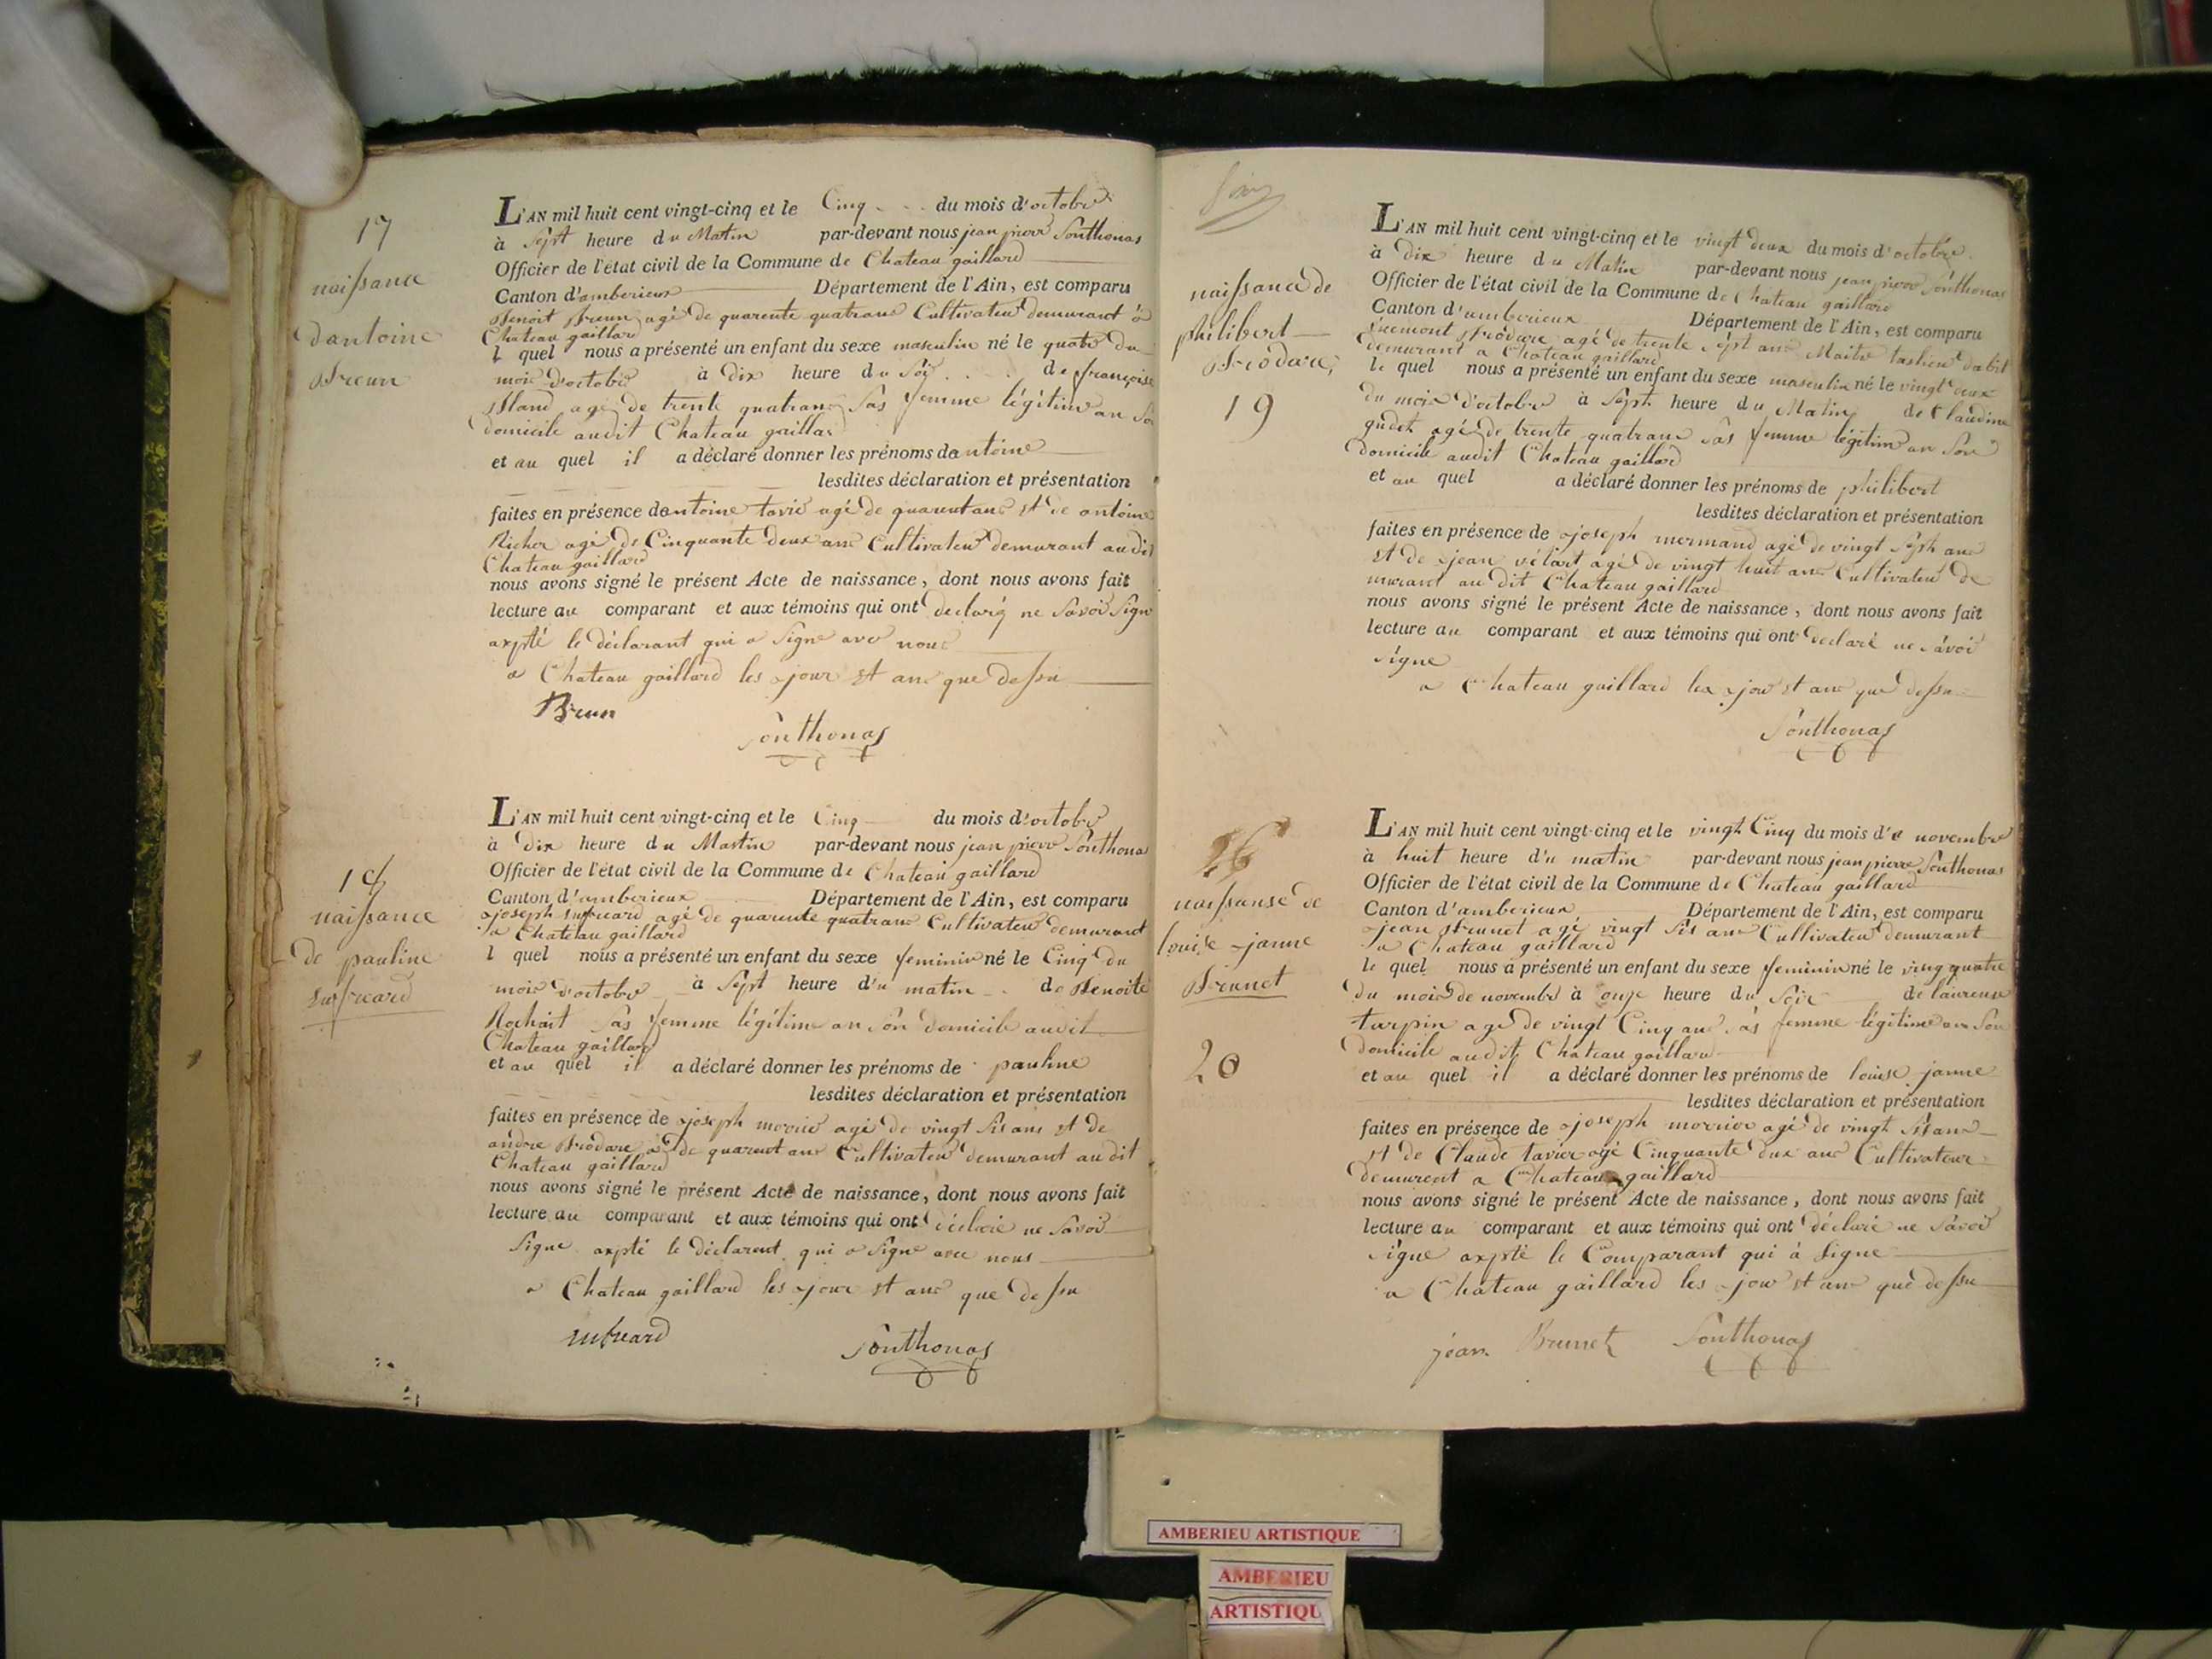 17
naissance
dantoine
Breun
L'AN mil huit cent vingt-cinq et le Cinq du mois d'octobre
à Sept heure du Matin par-devant nous jean pierre Sonthonas
Officier de l'état civil de la Commune de Chateau gaillard
Canton d'amberieux Département de l'Ain, est comparu
Benoit Breun agé de quarente quatrans Cultivateur demurant à
Chateau gaillard
l quel nous a présenté un enfant du sexe masculin né le quatre du
mois d'octobre à dix heure du Soir de françoise
agé de trente quatrans Sas femme légitime an Son
domicile audit Chateau gaillar
et au quel il a déclaré donner les prénoms dantoine
lesdites déclaration et présentation
faites en présence dantoine tavié agé de quarentans et de antoine
Richer agé de Cinquante deux ans Cultivateur demurant audit
Chateau gaillard
nous avons signé le présent Acte de naissance, dont nous avons fait
lecture au comparant et aux témoins qui ont declaré ne Savoir Signe
axpté le déclarant qui a Signe avec nous
a Chateau gaillard les jour et ans que dessu
Breun
Sonthonas
18
naissance
de pauline
L'AN mil huit cent vingt-cinq et le Cinq du mois d'octobre
à Dix heure du Mastin par-devant nous jean pierre Sonthonas
Officier de l'état civil de la Commune de Chateau gaillard
Canton d'amberieux Département de l'Ain, est comparu
joseph agé de quarente quatrans Cultivateur demurant
a Chateau gaillard
l quel nous a présenté un enfant du sexe feminin né le Cinq du
mois d'octobre à Sept heure d'u matin de Benoite
Rochait Sas femme légitime an Son domicile audit
Chateau gaillard
et au quel il a déclaré donner les prénoms de pauline
lesdites déclaration et présentation
faites en présence de joseph morrié agé de vingt Sis ans et de
andre Brodare a de quarentans Cultivateur demurant audit
Chateau gaillard
nous avons signé le présent Acte de naissance, dont nous avons fait
lecture au comparant et aux témoins qui ont déclaré ne Savoir
Signe axpté le déclarent qui a Signe avec nous
a Chateau gaillard les jour et ans que dessu
Sonthonas
naissance de
philibert
Brodare
19
L'AN mil huit cent vingt-cinq et le vingt deux du mois d'octobre
à Dix heure du Matin par-devant nous jean pierre Sonthonas
Officier de l'état civil de la Commune de Chateau gaillard
Canton d'amberieux Département de l'Ain, est comparu
Brodare agé de trente Sept ans Maitre dabit
demurant a Chateau gaillard
le quel nous a présenté un enfant du sexe masculin né le vingt deux
du mois d'octobre à Sept heure du Matin de Claudine
gudet agé de trente quatrans Sas femme légitime an Son
domicile audit Chateau gaillard
et au quel a déclaré donner les prénoms de philibert
lesdites déclaration et présentation
faites en présence de joseph mermand agé de vingt Sept ans
et de jean agé de vingt huit ans Cultivateur de
murant au dit Chateau gaillard
nous avons signé le présent Acte de naissance, dont nous avons fait
lecture au comparant et aux témoins qui ont declaré ne Savoir
Signe
a Chateau gaillard les jour et ans que dessu
Sonthonas
26
naissanse de
louise janne
Brunet
20
L'AN mil huit cent vingt-cinq et le vingt Cinq du mois d'e novembre
à huit heure d'u matin par-devant nous jean pierre Sonthonas
Officier de l'état civil de la Commune de Chateau gaillard
Canton d'amberieux Département de l'Ain, est comparu
jean Brunet agé vingt Sis ans Cultivateur demurant
a Chateau gaillard
le quel nous a présenté un enfant du sexe feminin né le ving quatre
du mois de novembre à onze heure du Soir de laurense
tarpin agé de vingt Cinq ans Sas femme légitime an Son
domicile audit Chateau gaillard
et au quel il a déclaré donner les prénoms de louise janne
lesdites déclaration et présentation
faites en présence de joseph morrier agé de vingt Sis ans
et de Claude tavier agé Cinquante dux ans Cultivateur
demurent a Chateau gaillard
nous avons signé le présent Acte de naissance, dont nous avons fait
lecture au comparant et aux témoins qui ont déclaré ne Savoir
Signe axpté le Comparant qui à Signe
a Chateau gaillard les jour et ans que dessu
jean Brunet Sonthonas
AMBERIEU ARTISTIQUE
AMBERIEU
ARTISTIQU